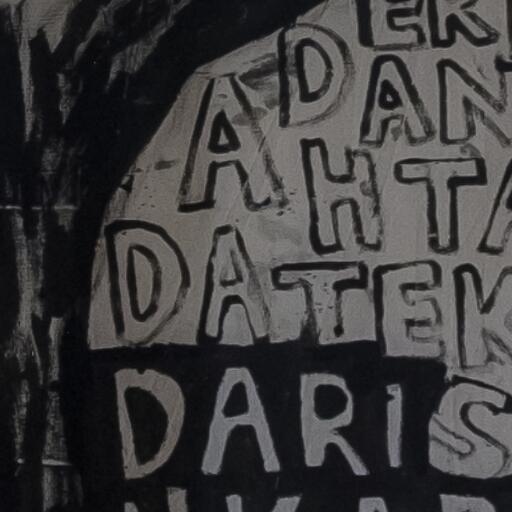 DER
ADAN
HTA
DATEK
DARIS